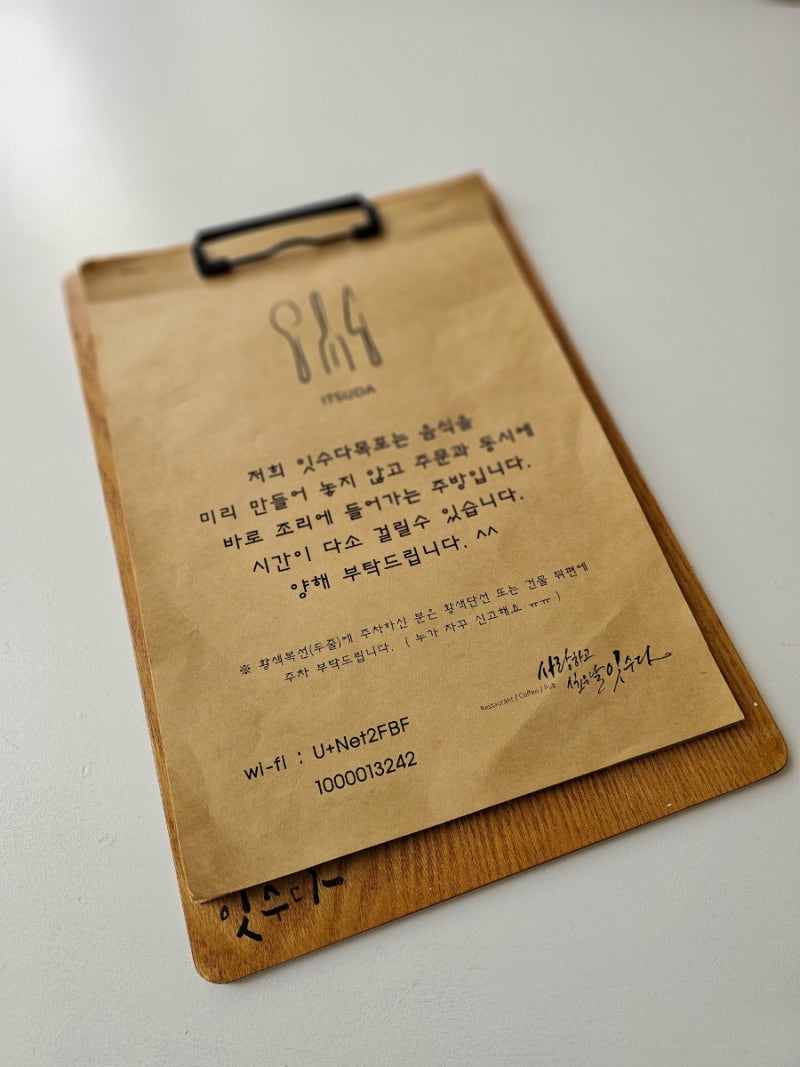 ITSUDA
저희 잇수다목포는 음식을
미리 만들어 놓지 않고 주문과 동시에
바로 조리에 들어가는 주방입니다.
시간이 다소 걸릴수 있습니다.
양해 부탁드립니다. ^^
※ 황색복선(두줄)에 주차하신 분은 황색단선 또는 건물 뒤편에
주차 부탁드립니다. ( 누가 자꾸 신고해요 ㅠㅠ )
사랑하고
싶은날 잇수다
Restaurant / Coffee / Pub
wi-fi : U+Net2FBF
1000013242
잇수다